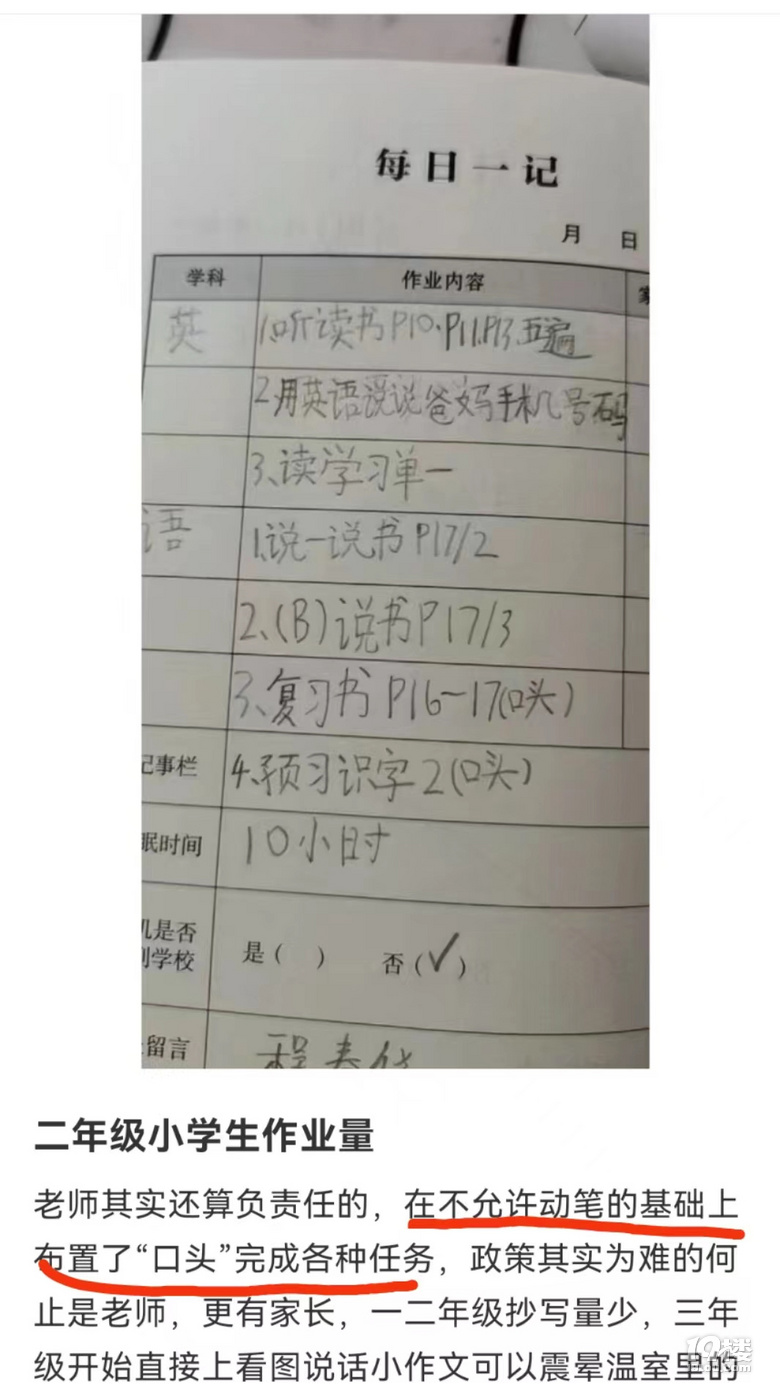 每日一记
月 日
学科 作业内容 家
英 1.听读书P10、P11、P13、五遍
2.用英语说说爸妈手机号码
3.读学习单一
语 1.说一说书P17/2
2.(B)说书P17/3
3.复习书P16-17(口头)
记事栏 4.预习识字2(口头)
眠时间 10小时
机是否
到学校 是( ) 否(✓)
留言
二年级小学生作业量
老师其实还算负责任的，在不允许动笔的基础上
布置了“口头”完成各种任务，政策其实为难的何
止是老师，更有家长，一二年级抄写量少，三年
级开始直接上看图说话小作文可以震晕温室里的
19楼